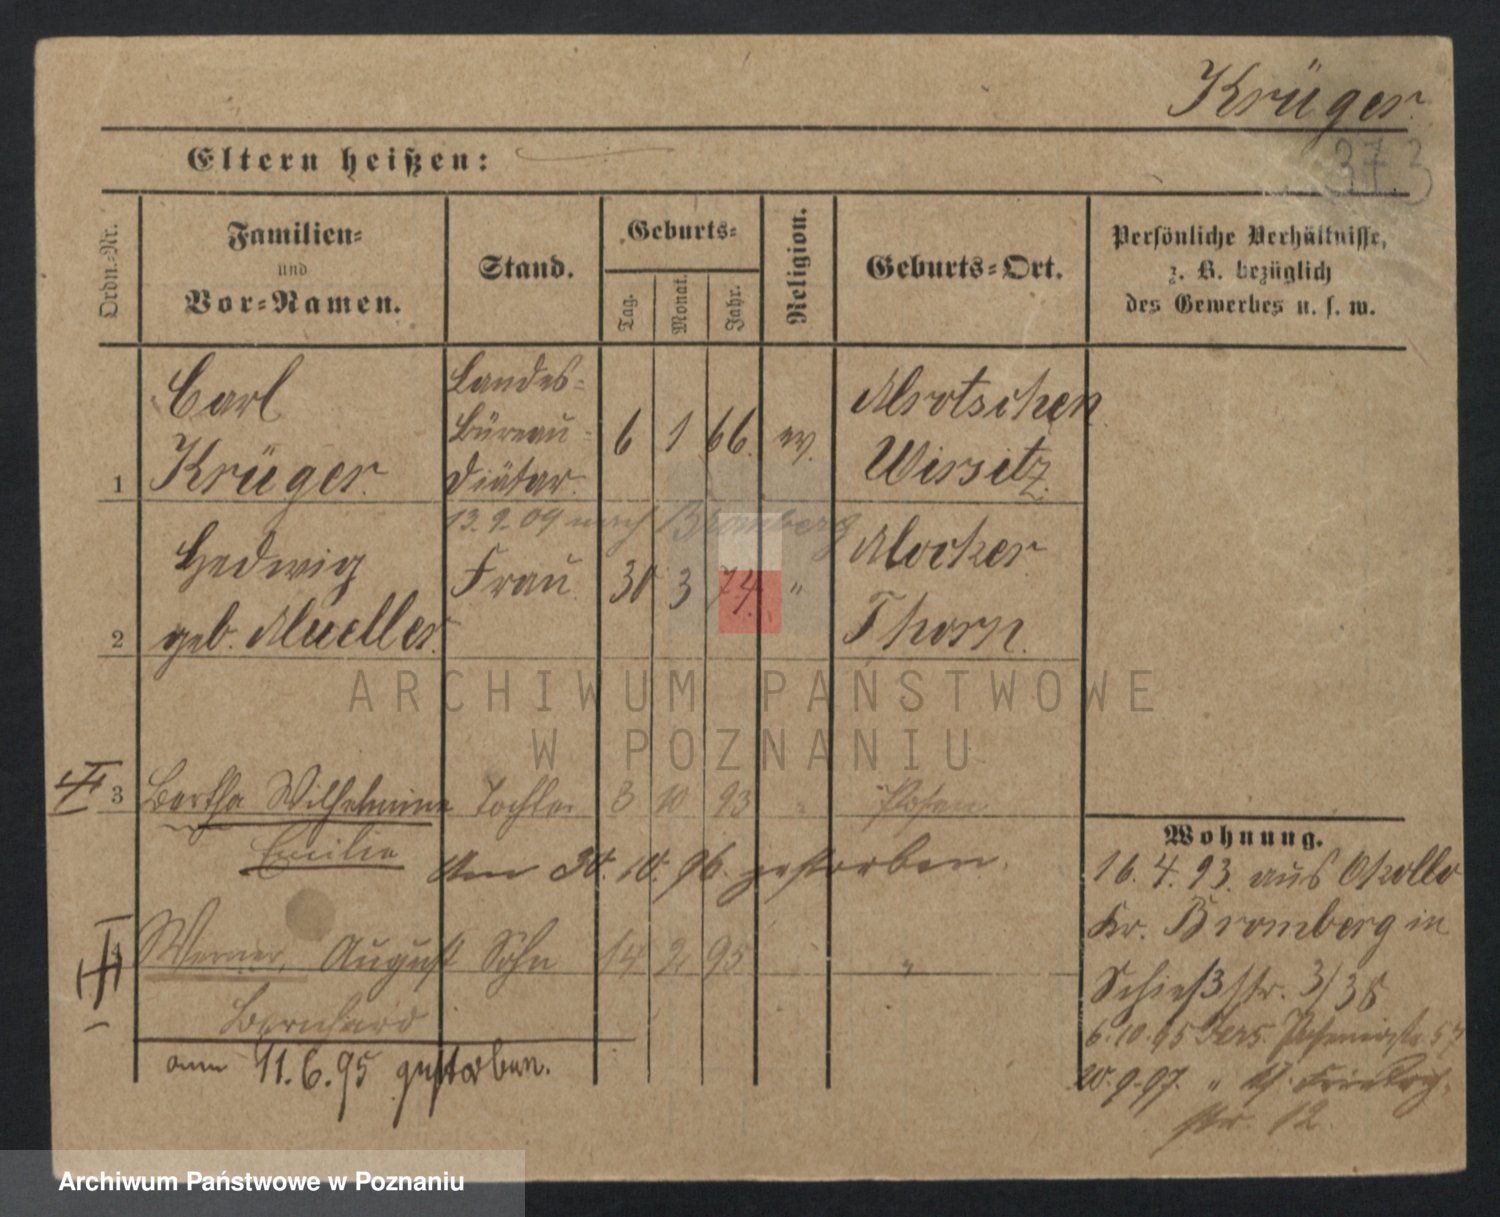 Krüger.
373
Eltern heißen:
Ordn.-Nr.
Familien-
und
Vor-Namen.
Stand.
Geburts-
Tag.
Monat.
Jahr.
Religion.
Geburts-Ort.
Persönliche Verhältnisse,
z. B. bezüglich
des Gewerbes u. s. w.
1 Carl Krüger. Landes-Büreau-Diätar. 6 1 66. ev. Mrotschen Wirsitz.
13.9.09 nach Bromberg
2 Hedwig geb. Mueller. Frau 30 3 74. " Mocker Thorn.
ARCHIWUM PAŃSTWOWE
W POZNANIU
3 Bertha Wilhelmine Tochter 8 10 93 " Posen
Emilie
am 30.10.96. gestorben.
4 Werner, August Sohn 14 2 95 "
Bernhard
am 11.6.95 gestorben.
Wohnung.
16.4.93. aus Okollo
Kr. Bromberg in
Schießstr. 3/38
6.10.95 Jers. 57
20.9.97. "
str. 12.
Archiwum Państwowe w Poznaniu